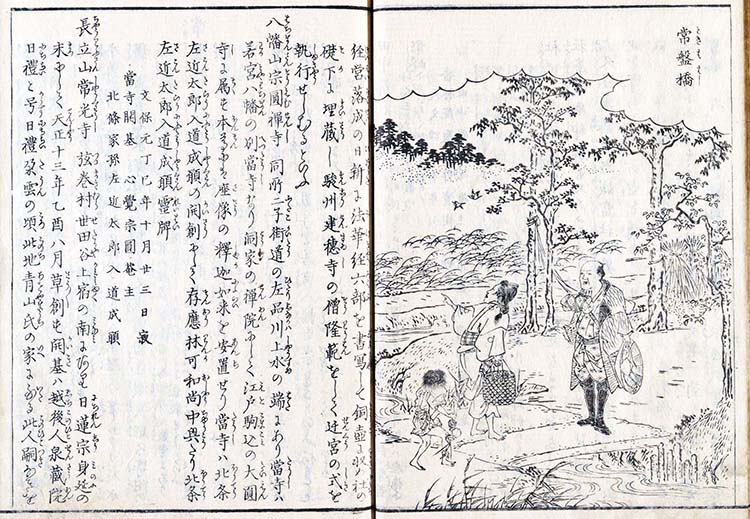 常盤橋
経営落成の日新に法華経六部を書写して銅壺に収社の
礎下に埋蔵し駿州建穂寺の僧隆範をして迁宮の式を
執行せしむるとのふ
八幡山宗圓禅寺 同所二子街道の左品川上水の端にあり當寺ハ
若宮八幡の別當寺なり洞家の禅院にして江戸駒込の大圓
寺に属も本尊ハ座像の釋迦如来を安置せり當寺ハ北条
左近太郎入道成願の開創にして存應林可和尚中興たり北条
左近太郎入道成願霊牌
文保元丁巳年十月廿三日寂
當寺開基 心覺宗圓菴主
北條家孫左近太郎入道成願
長立山常光寺 弦巻村世田谷上宿の南にあり日蓮宗身延の
末にして天正十三年乙酉八月草創も開基ハ越後人泉蔵院
日禮と号日禮発雲の頃此地青山氏の家に此人嗣